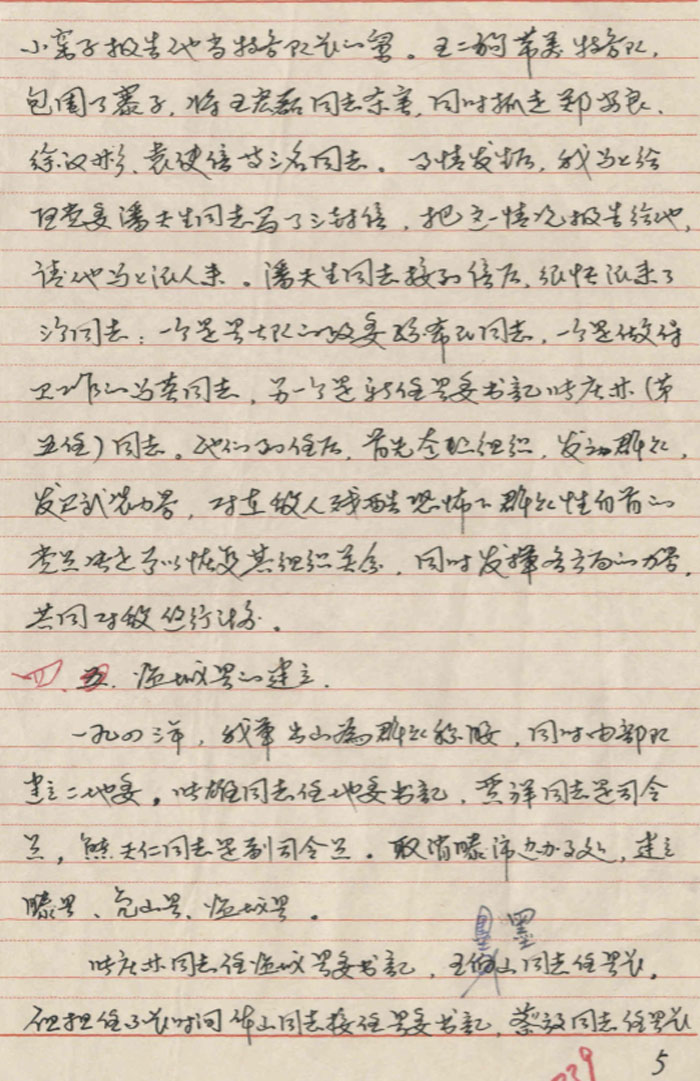 小窝子报告他当特务队长的舅。王二狗带着特务队,
包围了寨子,将王宏磊同志杀害,同时抓走郑安良、
徐汉彬、袁健倍等三名同志。事情发生后,我马上给
区党委潘天生同志写了三封信,把这一情况报告给他,
请他马上派人来。潘天生同志接到信后,很快派来了
三个同志:一个是县大队的政委孙希民同志,一个是做保
卫工作的马英同志,另一个是新任县委书记时庆林(第
五任)同志。他们到任后,首先整顿组织,发动群众,
发展武装力量,对在敌人残酷恐怖下群众性自首的
党员决定予以恢复其组织关系,同时发挥各方面的力量,
共同对敌进行斗争。
四、五、临城县的建立。
一九四三年,我军出山为群众称颂,同时由部队
建立二地委,时雄同志任地委书记,贾祥同志是司令
员,熊天仁同志是副司令员。取消滕沛边办事处,建立
滕县、凫山县、临城县。
时庆林同志任临城县委书记,王墨山同志任县长。
但担任不长时间华山同志接任县委书记,蔡毅同志任县长
5
39